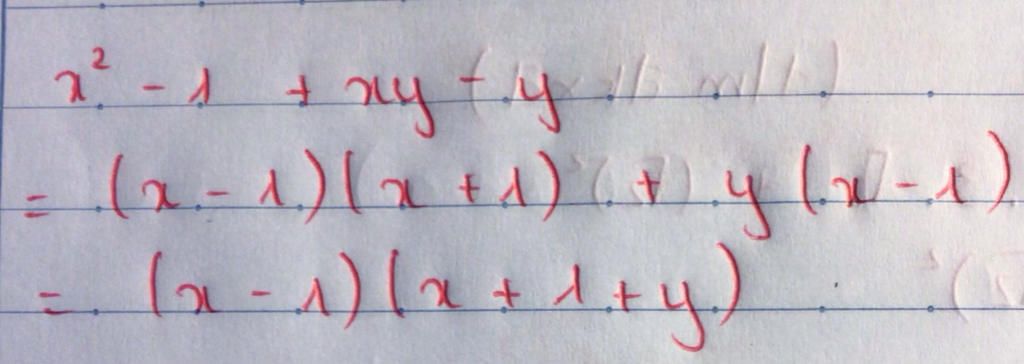 x² - 1 + xy - y
= (x - 1)(x + 1) + y(x - 1)
= (x - 1)(x + 1 + y)